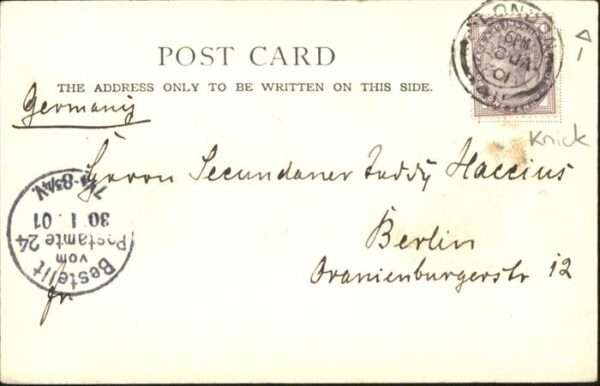 POST CARD
THE ADDRESS ONLY TO BE WRITTEN ON THIS SIDE.
LONDON
6 PM
JA
01
Germany
Knick
Herrn Secundaner Teddy Haccius
Berlin
Oranienburgerstr 12
Bestellt
vom
Postamte 24
30 1. 01
fr